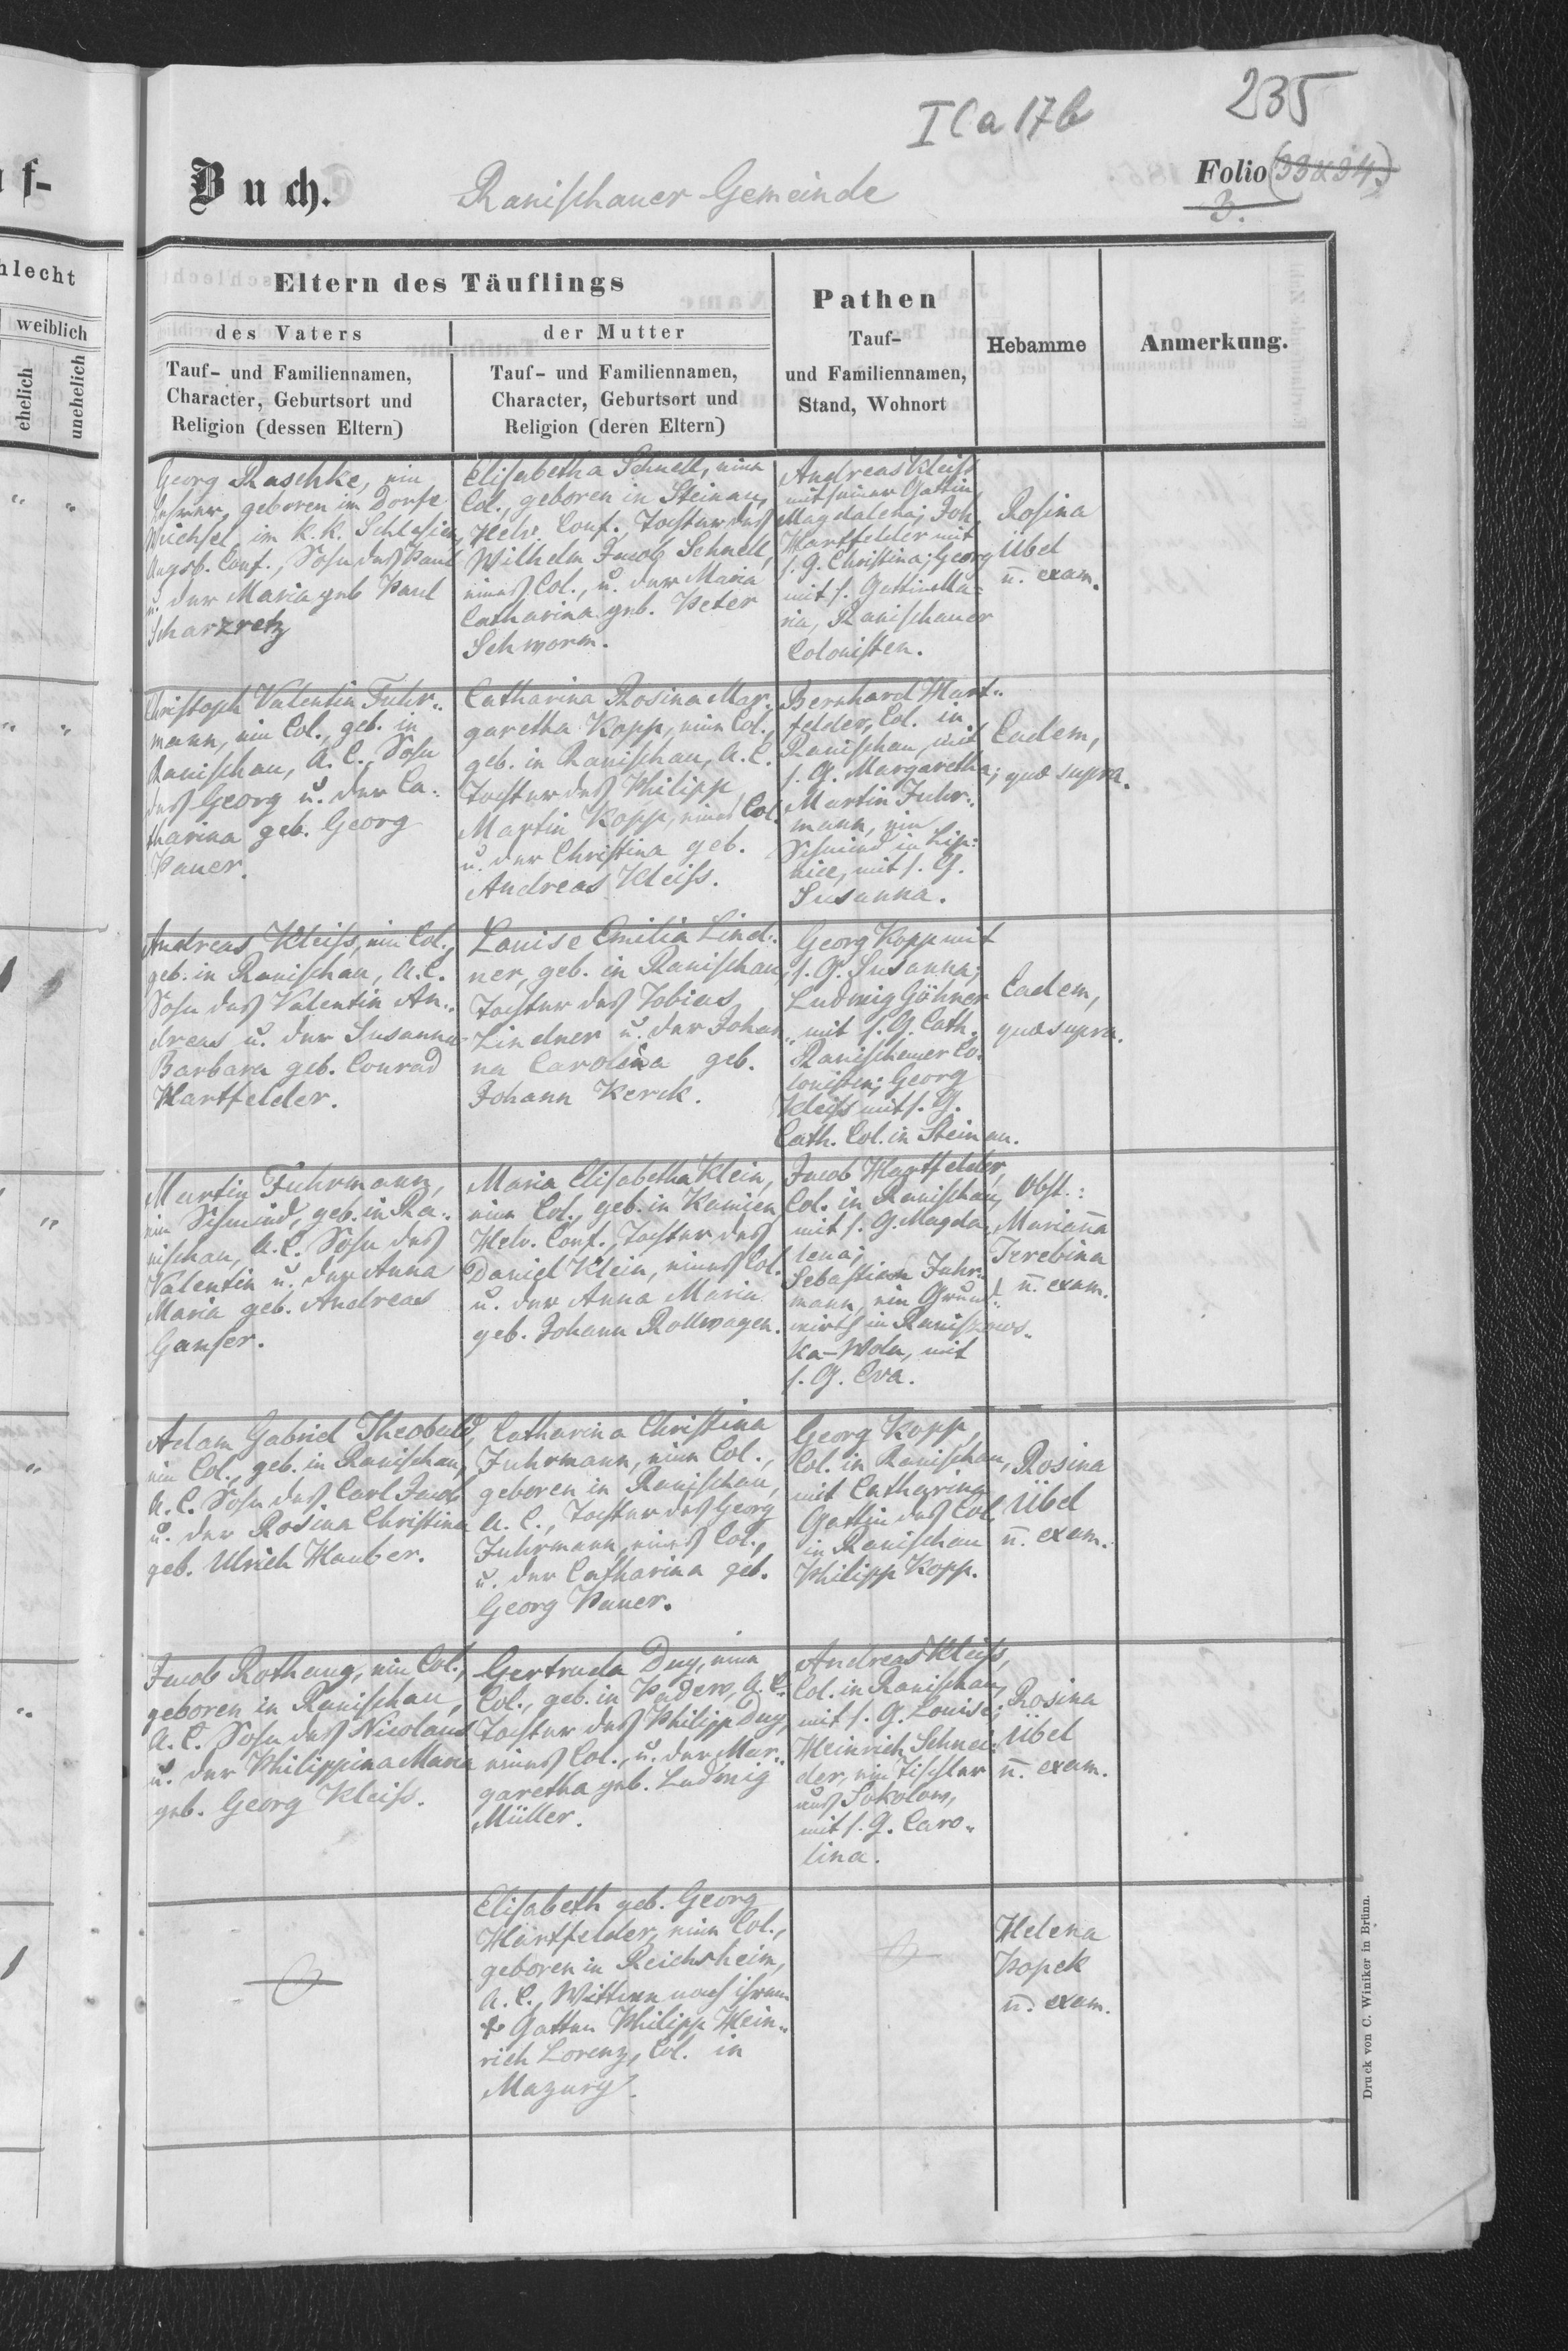 I C a 17b
235
f-
Buch.
Ranischauer Gemeinde
Folio (33 & 34.)
3.
hlecht
weiblich
ehelich
unehelich
Eltern des Täuflings
des Vaters
der Mutter
Tauf- und Familiennamen,
Character, Geburtsort und
Religion (dessen Eltern)
Tauf- und Familiennamen,
Character, Geburtsort und
Religion (deren Eltern)
Pathen
Tauf-
und Familiennamen,
Stand, Wohnort
Hebamme
Anmerkung.
Georg Raschke, ein
Lehrer, geboren im Dorfe
Weichsel, im k. k. Schlesien,
Augsb. Conf., Sohn des Paul
u. der Maria geb. Paul
Scharzretz
Elisabetha Schnell, eine
Col., geboren in Steinau,
Helv. Conf., Tochter des
Wilhelm Jacob Schnell,
eines Col., u. der Maria
Catharina geb. Peter
Schworm.
Andreas Kleiss
mit seiner Gattin
Magdalena; Joh.
Hartfelder mit
s. G. Christina; Georg
mit s. Gattin Ma-
ria, Ranischauer
Colonisten.
Rosina
Übel
n. exam.
Christoph Valentin Fuhr-
mann, ein Col., geb. in
Ranischau, A. C., Sohn
des Georg u. der Ca-
tharina geb. Georg
Pauer.
Catharina Rosina Mar-
garetha Kopp, eine Col.,
geb. in Ranischau, A. C.
Tochter des Philipp
Martin Kopp, eines Col.
u. der Christina geb.
Andreas Kleiss.
Bernhard Hart-
felder, Col. in
Ranischau, mit
s. G. Margaretha;
Martin Fuhr-
mann, ein
Schmied in Lip-
nice, mit s. G.
Susanna.
Eadem,
quæ supra.
Andreas Kleiss, ein Col.,
geb. in Ranischau, A. C.
Sohn des Valentin An-
dreas u. der Susanna
Barbara geb. Conrad
Hartfelder.
Louise Emilia Lind-
ner, geb. in Ranischau,
Tochter des Tobias
Lindner u. der Johan-
na Carolina geb.
Johann Kerck.
Georg Kopp mit
s. G. Susanna;
Ludwig Göhner
mit s. G. Cath.
Ranischauer Co-
lonisten; Georg
Kleiss mit s. G.
Cath. Col. in Steinau.
Eadem,
quæ supra.
Martin Fuhrmann,
ein Schmied, geb. in Ra-
nischau, A. C. Sohn des
Valentin u. der Anna
Maria geb. Andreas
Ganser.
Maria Elisabetha Klein,
eine Col., geb. in Kamien,
Helv. Conf., Tochter des
Daniel Klein, eines Col.
u. der Anna Maria
geb. Johann Rollwagen.
Jacob Hartfelder,
Col. in Ranischau,
mit s. G. Magda-
lena;
Sebastian Fuhr-
mann, ein Grund-
wirth in Ranizows-
ka-Wola, mit
s. G. Eva.
Obst.:
Marianna
Terebina
n. exam.
Adam Gabriel Theobald,
ein Col., geb. in Ranischau,
A. C. Sohn des Carl Jacob
u. der Rosina Christina
geb. Ulrich Hauber.
Catharina Christina
Fuhrmann, eine Col.,
geboren in Ranischau,
A. C., Tochter des Georg
Fuhrmann, eines Col.,
u. der Catharina geb.
Georg Pauer.
Georg Kopp,
Col. in Ranischau,
mit Catharina
Gattin des Col.
in Ranischau
Philipp Kopp.
Rosina
Übel
n. exam.
Jacob Rothaug, ein Col.,
geboren in Ranischau,
A. C. Sohn des Nicolaus
u. der Philippina Maria
geb. Georg Kleiss.
Gertruda Duy, eine
Col., geb. in Padew, A. C.
Tochter des Philipp Duy,
eines Col., u. der Mar-
garetha geb. Ludwig
Müller.
Andreas Kleiss,
Col. in Ranischau,
mit s. G. Louise;
Heinrich Schnei-
der, ein Tischler
aus Sokolow,
mit s. G. Caro-
lina.
Rosina
Übel
n. exam.
Elisabeth geb. Georg
Hartfelder, eine Col.,
geboren in Reichsheim,
A. C., Wittwe nach ihrem
† Gatten Philipp Hein-
rich Lorenz, Col. in
Mazury.
Helena
Kopek
n. exam.
Druck von C. Winiker in Brünn.